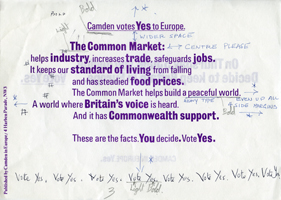 Bold
Camden votes Yes to Europe.
WIDER SPACE
The Common Market:
CENTRE PLEASE
helps industry, increases trade, safeguards jobs.
It keeps our standard of living from falling
and has steadied food prices.
The Common Market helps build a peaceful world.
A world where Britain's voice is heard.
EVEN UP ALL
SIDE MARGINS
And it has Commonwealth support.
Bold
These are the facts. You decide. Vote Yes.
Vote Yes, Vote Yes. Vote Yes. Vote Yes. Vote Yes. Vote Yes. Vote Yes. Vote Yes
3
Published by Camden in Europe: 4 Harben Parade, NW3